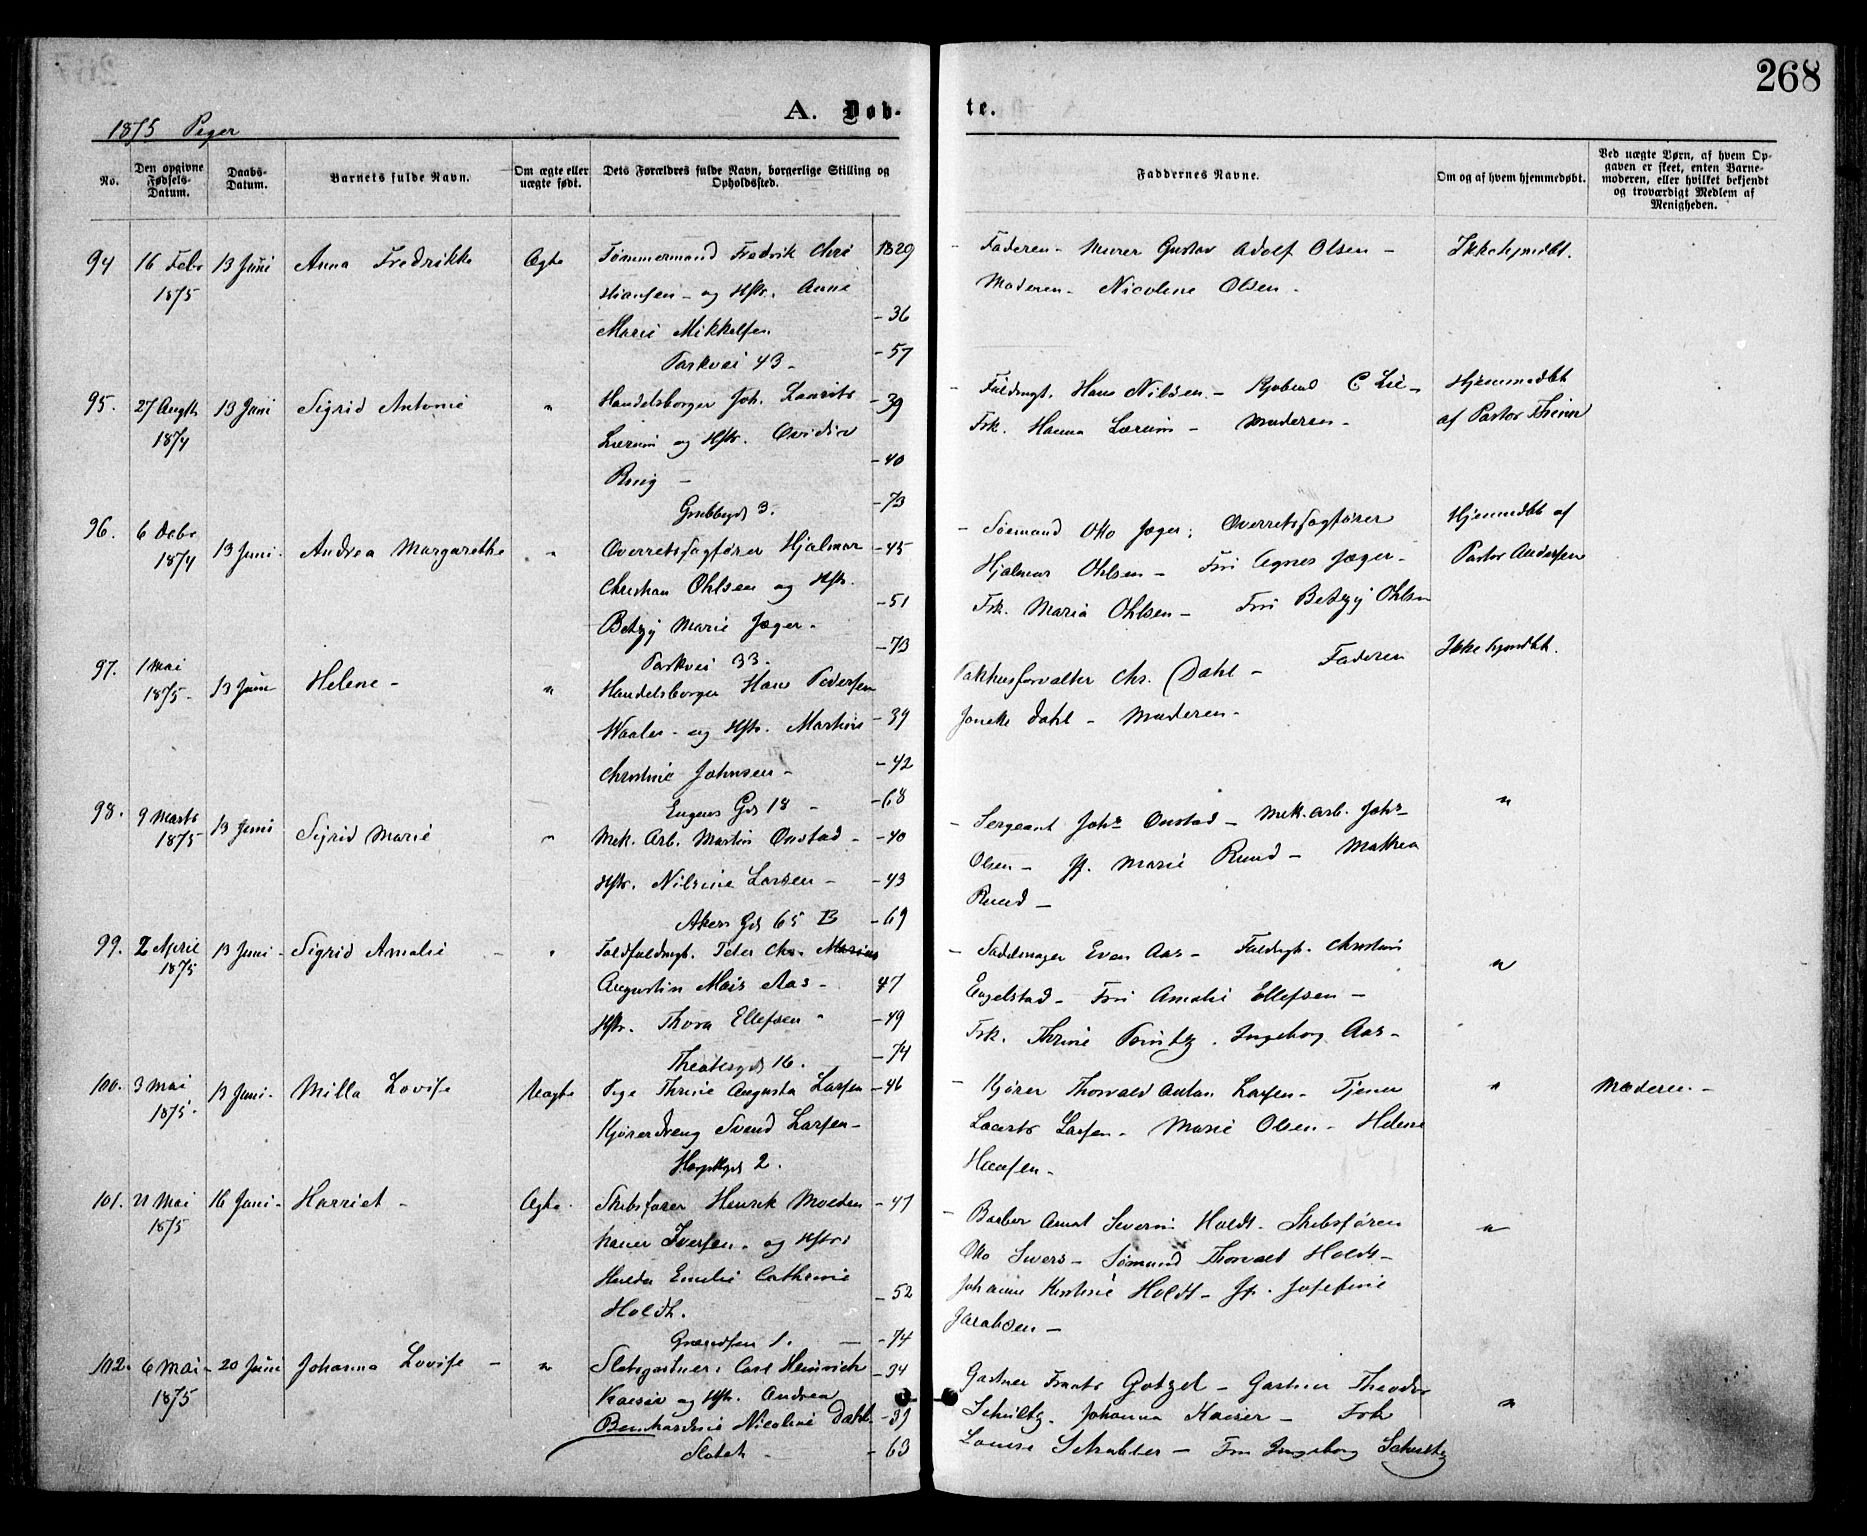 268
A. Døb-
te.
1875 Piger
No.
Den opgivne Fødsels-Datum.
Daabs-Datum.
Barnets fulde Navn.
Om ægte eller uægte født.
Dets Forældres fulde Navn, borgerlige Stilling og Opholdssted.
Faddernes Navne.
Om og af hvem hjemmedøbt.
Ved uægte Børn, af hvem Op-
gaven er skeet, enten Barne-
moderen, eller hvilket bekjendt
og troværdigt Medlem af
Menigheden.
94 16 Febr 1875 13 Juni Anna Fredrikke Ægte
Tømmermand Fredrik Chri 1829
stiansen - og Hstr. Anne
Marie Mikkelsen - 36
Parkvei 43 - - 57
Faderen - Murer Gustav Adolf Olsen -
Moderen - Nicoline Olsen -
Ikke hjmdbt.
95. 27 Augst 1874 13 Juni Sigrid Antonie "
Handelsborger Joh. Laurits - 39
Lærum og Hstr.
Ring - - 40
Grubbegd 3. - 73
- Fuldmgt. Hans Nilsen - C Lie -
Frk. Hanna Lærum - Moderen -
Hjemmedbt
af Pastor
96. 6 Debr 1874 13 Juni - Andrea Margarethe "
Overretssagfører Hjalmar - 45
Christian Ohlsen og Hstr.
Betzy Marie Jæger - - 51
Parkvei 33. - 73
- Sømand Otto Jæger; Overretssagfører
Hjalmar Ohlsen - Fru Agnes Jæger -
Frk. Maria Ohlsen - Fru Betzy Ohlsen
Hjemmedbt af
Pastor Andersen
97. 1 Mai 1875 - 13 Juni Helene - "
Handelsborger Hans Pedersen
Waaler - og Hstr. Martine - 39
Christine Johnsen - - 42
Eugenes Gd 18 - - 68
Pakhusforvalter Chr. Dahl - Faderen
Dahl - Moderen -
Ikke hjmdbt.
98. 9 Marts 1875 13 Juni Sigrid Marie "
Mek. Arb. Martin Onstad - - 40
Hstr. Nilsine Larsen - - 43
Akers Gd 65 B - 69
- Sergeant Johs Onstad - Mek. arb. Johs
Olsen - Jf. Marie Ruud - Mathea
Ruud -
"
99. 2 April 1875 13 Juni - Sigrid Amalie - "
Toldfuldmgt. Peter Chr. Marius
Augustin Mais Aas - 47
Hstr. Thora Ellefsen - - 49
Theatergd 16. - 74
- Sadelmager Even Aas - Fuldmgt. Christian
Engelstad - Fru Amalie Ellefsen -
Frk. Thrine Printz. Ingeborg Aas -
"
100. 3 Mai 1875 - 13 Juni - Milla Lovise Uægte
Pige Thrine Augusta Larsen - 46
Kjøredreng Svend Larsen -
2.
- Kjører Thorvald Anton Larsen - Tjener
Larsen - Marie Olsen - Helene
Hansen -
"
Moderen -
101. 21 Mai 1875 16 Juni - Harriet - Ægte.
Skibsfører Henrik Molden - 47
hauer Iversen - og Hstr.
Hulda Emilie Cathrine - 52
Holdt.
Grændsen 1. - - 74
- Barber Arndt Severin Holdt - Skibsføren
Otto - Sømand Thorvald Holdt -
Johanne Kirstine Holdt - Jf. Josefine
Jacobsen -
"
102. 6 Mai - 1875 20 Juni Johanna Lovise - "
Slotsgartner Carl Heinrich - 34
Kaeser og Hstr. Andrea
Bernhardine Nicoline Dahl. - 39
Slottet - - 63
Gartner Frants Gotzel - Gartner Theodor
Schultz. Johanna Kaeser - Frk
Louise - Fru Ingeborg Schultz
"